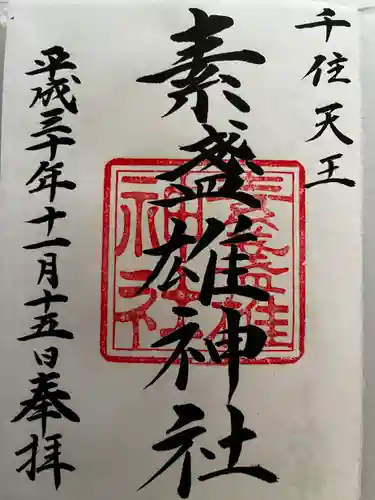 千住天王
素盞雄神社
平成三十年十一月十五日奉拝
素盞雄
神社